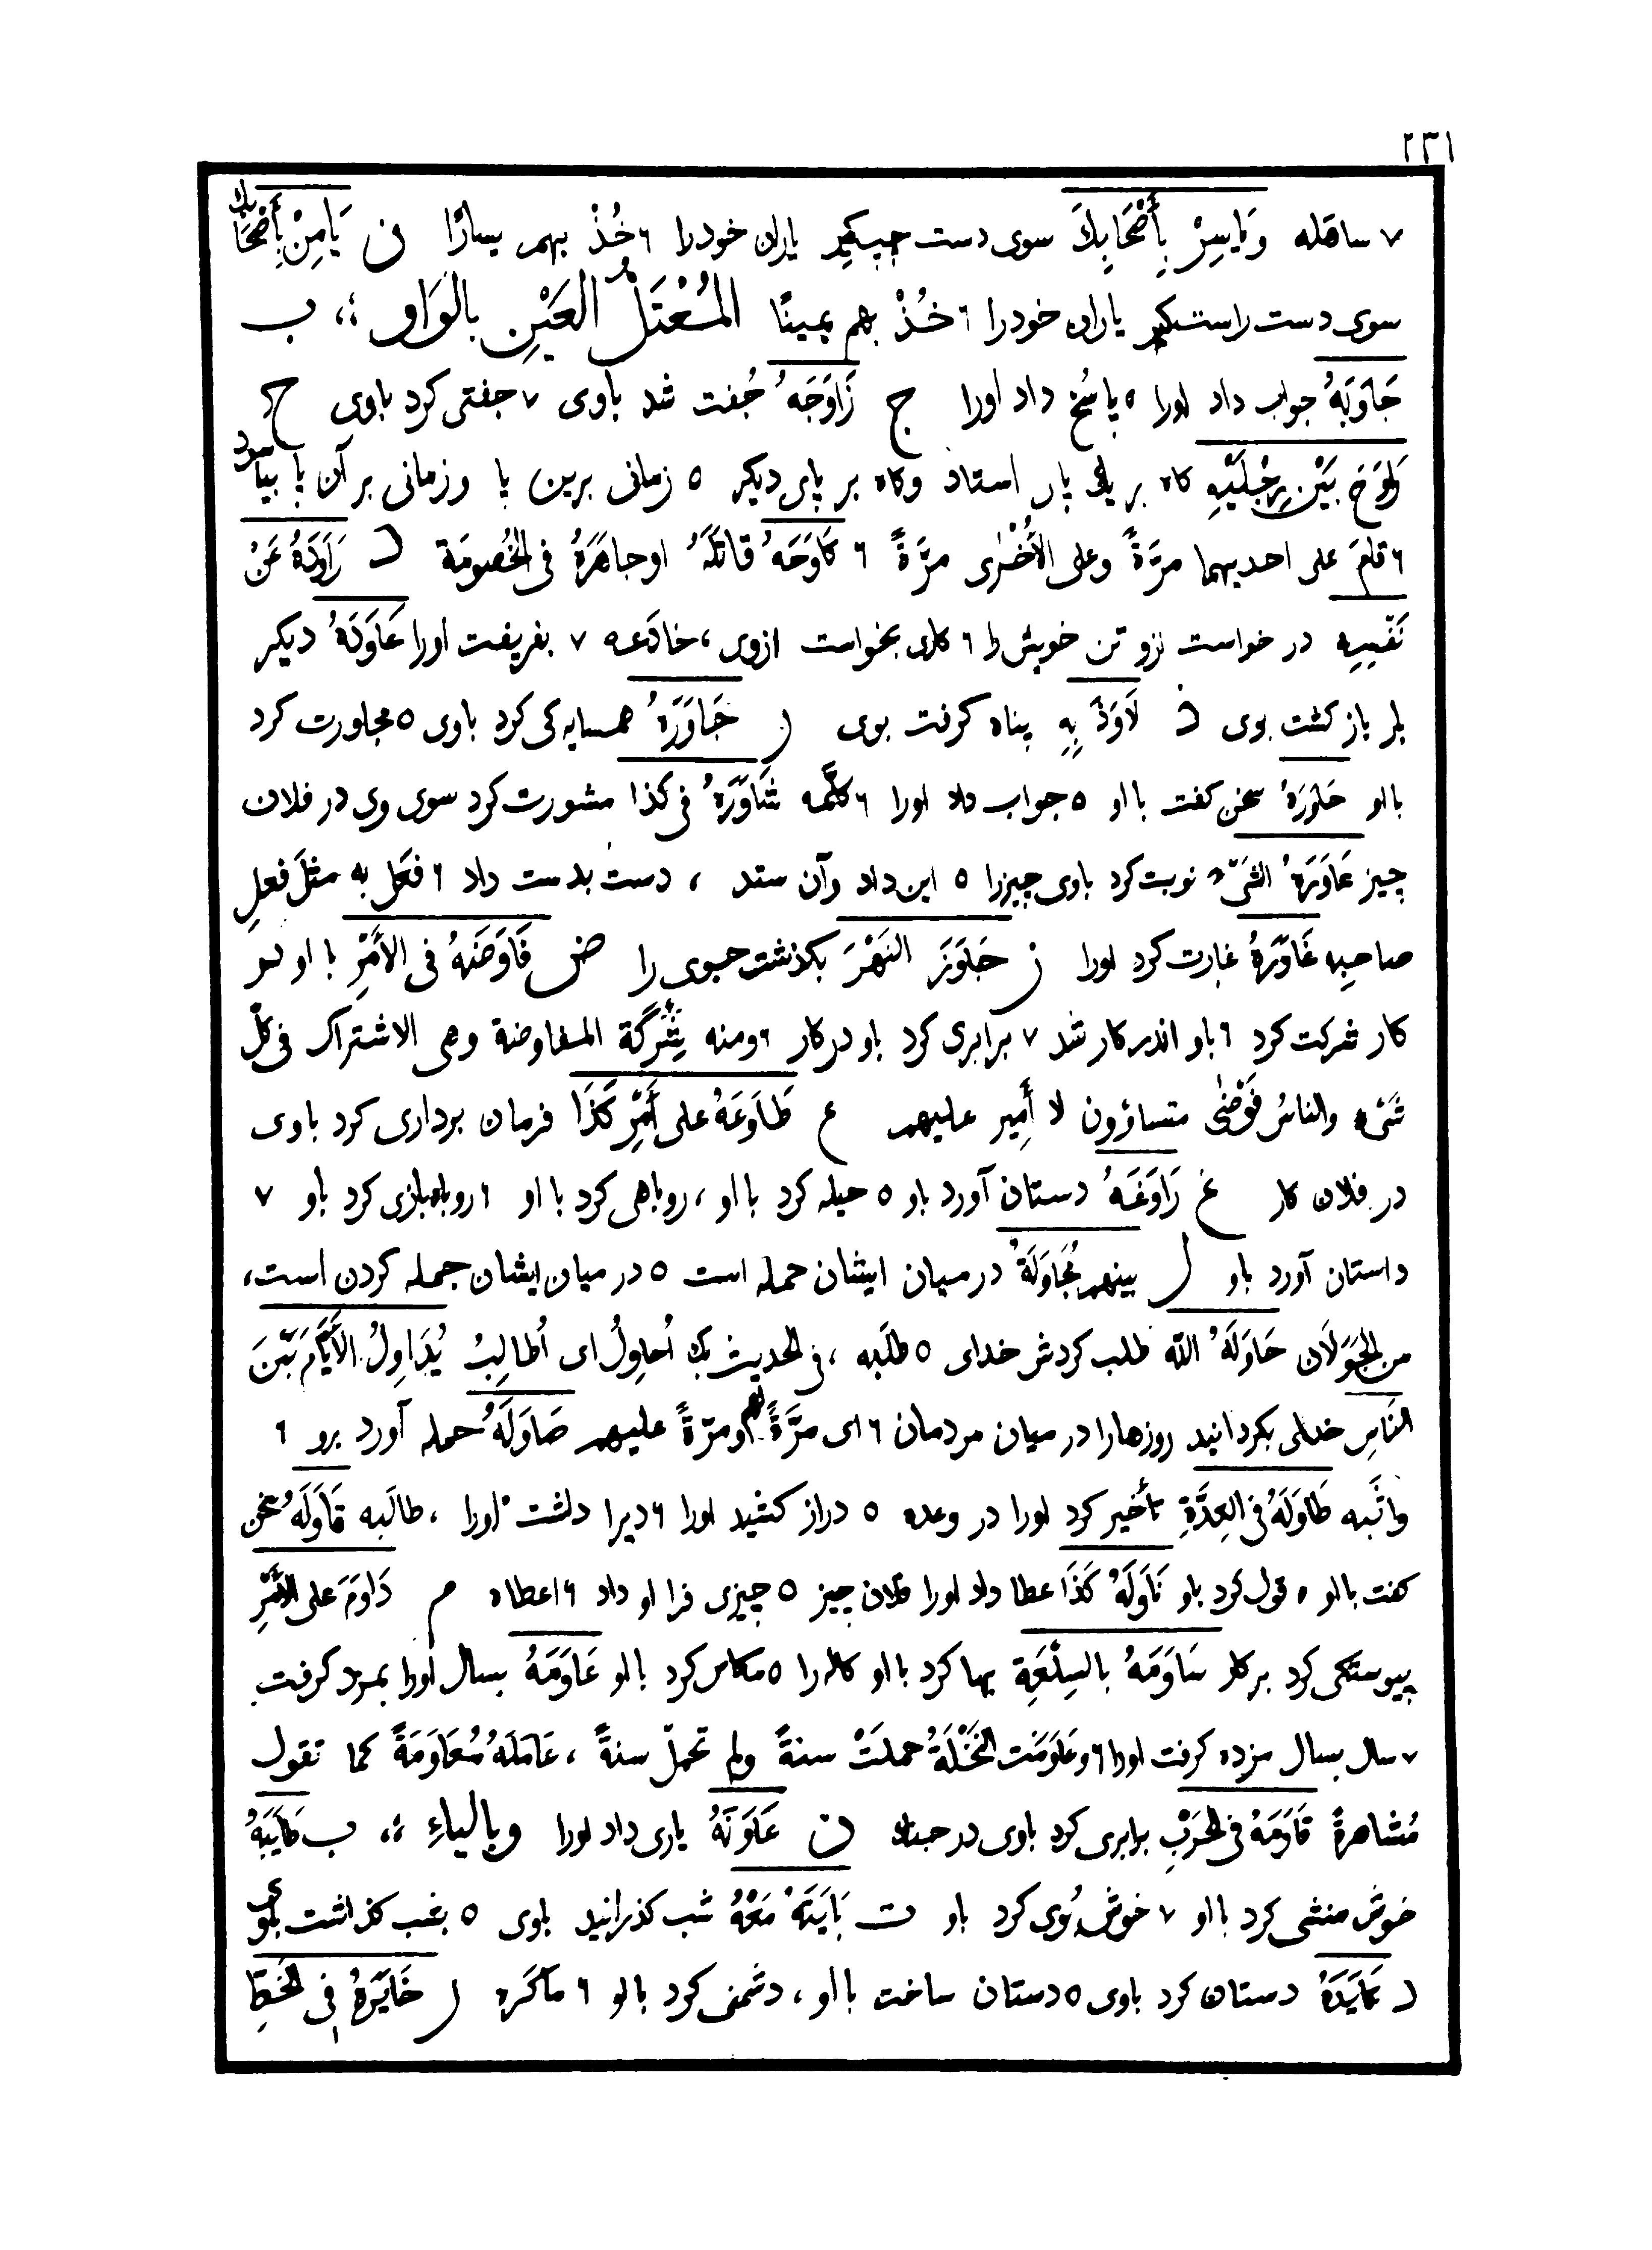 ٢٣١
٧ ساهله وَيَاسِرْ بِأَصْحَابِكَ سوی دست چپ گیر یاران خودرا ٦ خُذْ بهم يسارًا ن يَامِنْ بِأَصْحَابِكَ
سوی دست راست گیر یاران خودرا ٦ خُذْ بهم يمينًا المُعْتَلُّ العَيْنِ بالوَاوِ ؛، ب
جَاوَبَهُ جواب داد اورا ٥ پاسُخ داد اورا ج زَاوَجَهُ جُفت شد باوی ٧ جفتی کرد باوی ح
رَاوَحَ بَيْنَ رِجْلَيْهِ کاه بر یک پای استاذ وکاه بر پای دیکر ٥ زمانی برین پا وزمانی بر آن پا بیاسود
٦ قامَ على احديهما مرّةً وعلى الأُخْرى مرّةً ٦ كَاوَحَهُ قاتلَهُ او جاهَرَهُ فى الخُصومَة د رَاوَدَهُ عَنْ
نَفْسِهِ در خواست ازو تن خویش را ٦ کاری بخواست ازوی، خادَعه ٧ بفریفت اورا عَاوَدَهُ دیکر
بار باز کشت بوی ذ لَاوَذَ بِهِ پناه کرفت بوی ر جَاوَرَهُ همسایه کی کرد باوی ٥ مجاورت کرد
با او حَاوَرَهُ سخن کفت با او ٥ جواب داد اورا ٦ كلَّمه شَاوَرَهُ فى كذا مشورت کرد سوی وی در فلان
چیز عَاوَرَهُ الشَّىْءَ نوبت کرد باوی چیزرا ٥ این داد وآن ستد ، دست بدست داد ٦ فعَل به مثلَ فعلِ
صاحِبِه غَاوَرَهُ غارت کرد اورا ز جَاوَزَ النَهْرَ بکذشت جوی را ض فَاوَضَهُ فى الأَمْرِ با او در
کار شرکت کرد ٦ باو اندر کار شد ٧ برابری کرد باو در کار ٦ ومنه شِرْكَة المفاوضة وهى الاشتراك فى كلّ
شَىْء والناسُ فَوْضَىٰ متساوُون لا أَمِير عليهم ع طَاوَعَهُ على أَمْرِ كَذَا فرمان برداری کرد باوی
در فلان کار غ رَاوَغَهُ دستان آورد باو ٥ حیله کرد با او ، روباهی کرد با او ٦ روباه بازی کرد باو ٧
داستان آورد باو ل بينهم مُجَاوَلَةٌ در میان ایشان حمله است ٥ در میان ایشان حمله کردن است،
من الجَوَلَان حَاوَلَهُ اللّٰه طلب کردش خدای ٥ طلَبه ، فى الحديث بك أُحاوِلُ اى أُطالِبُ يُدَاوِلُ الأَيَّامَ بَيْنَ
النَاسِ خدای بکرداند روزهارا در میان مردمان ٦ اى مرّةً لهم ومرّةً عليهم صَاوَلَهُ حمله آورد برو ٦
واثَبه طَاوَلَهُ فى العِدَّةِ تأخیر کرد اورا در وعده ٥ دراز کشید اورا ٦ دیرا داشت اورا ، طالَبه قَاوَلَهُ سخن
کفت با او ٥ قول کرد باو نَاوَلَهُ كَذَا عطا داد اورا فلان چیز ٥ چیزی فرا او داد ٦ اعطاه م دَاوَمَ على الأَمْرِ
پیوستکی کرد بر کار سَاوَمَهُ بالسِلْعَةِ بها کرد با او کاله را ٥ مکاس کرد با او عَاوَمَهُ بسال اورا بمزد کرفت
٧ سال بسال مزده کرفت اورا ٦ وعَاوَمَت النَخْلَةُ حملَتْ سنةً ولم تحملْ سنةً ، عَامَلَهُ مُعَاوَمَةً كما تقول
مُشاهرةً قَاوَمَهُ فى الحَرْبِ برابری کرد باوی در جنك ن عَاوَنَهُ یاری داد اورا وبالياءِ ؛، ب طَايَبَهُ
خوش منشی کرد با او ٧ خوش بُوی کرد باو ت بَايَتَهُ مَعَهُ شب کذرانید باوی ٥ بشب کذاشت باوی
د كَايَدَهُ دستان کرد باوی ٥ دستان ساخت با او ، دشمنی کرد با او ٦ ماكَره ر خَايَرَهُ فى الخَطِّ